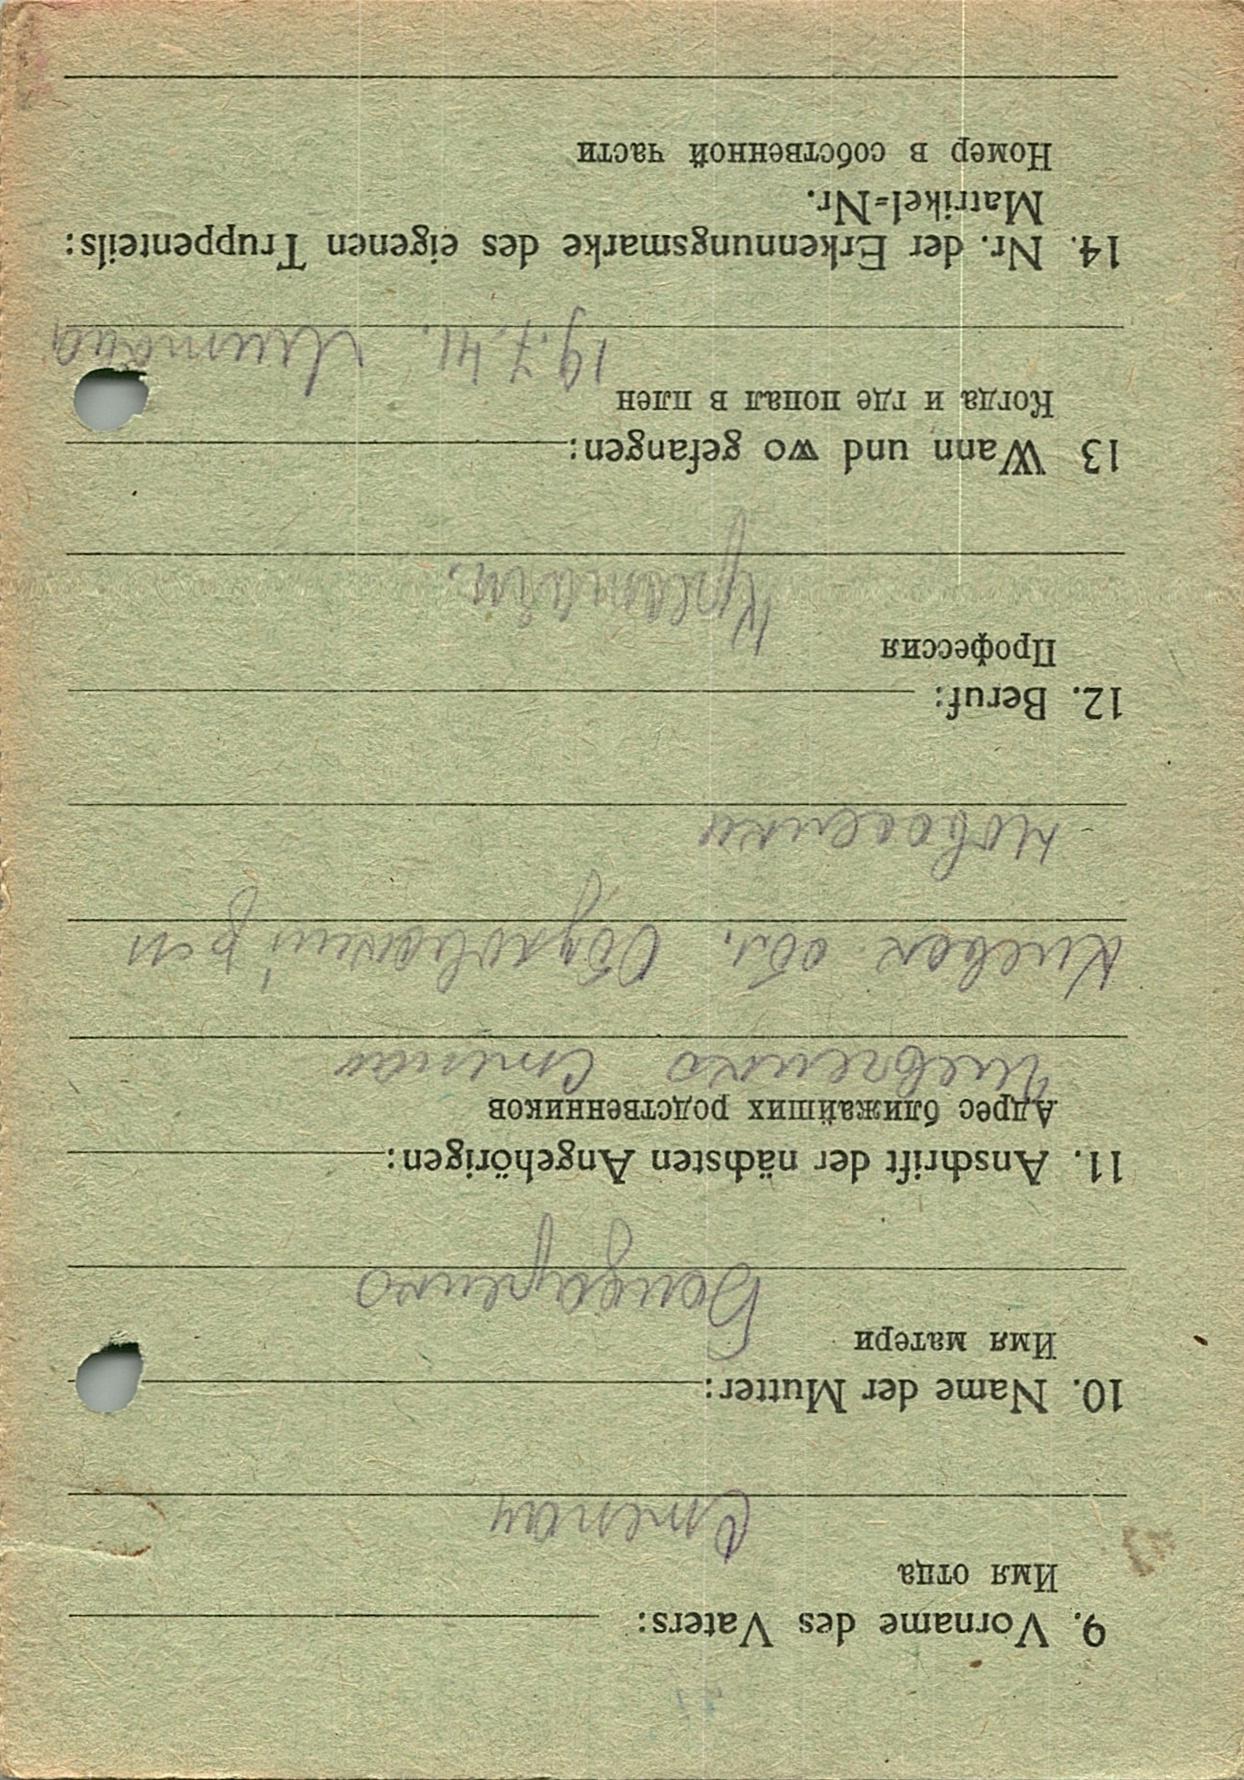 9. Vorname des Vaters:
Имя отца
Степан
10. Name der Mutter:
Имя матери
Бондаренко
11. Anschrift der nächsten Angehörigen:
Адрес ближайших родственников
Шевченко Степан
Киевск. обл. р-н
Новоселки
12. Beruf:
Профессия
13 Wann und wo gefangen:
Когда и где попал в плен
19.7.41.
14. Nr. der Erkennungsmarke des eigenen Truppenteils:
Matrikel-Nr.
Номер в собственной части